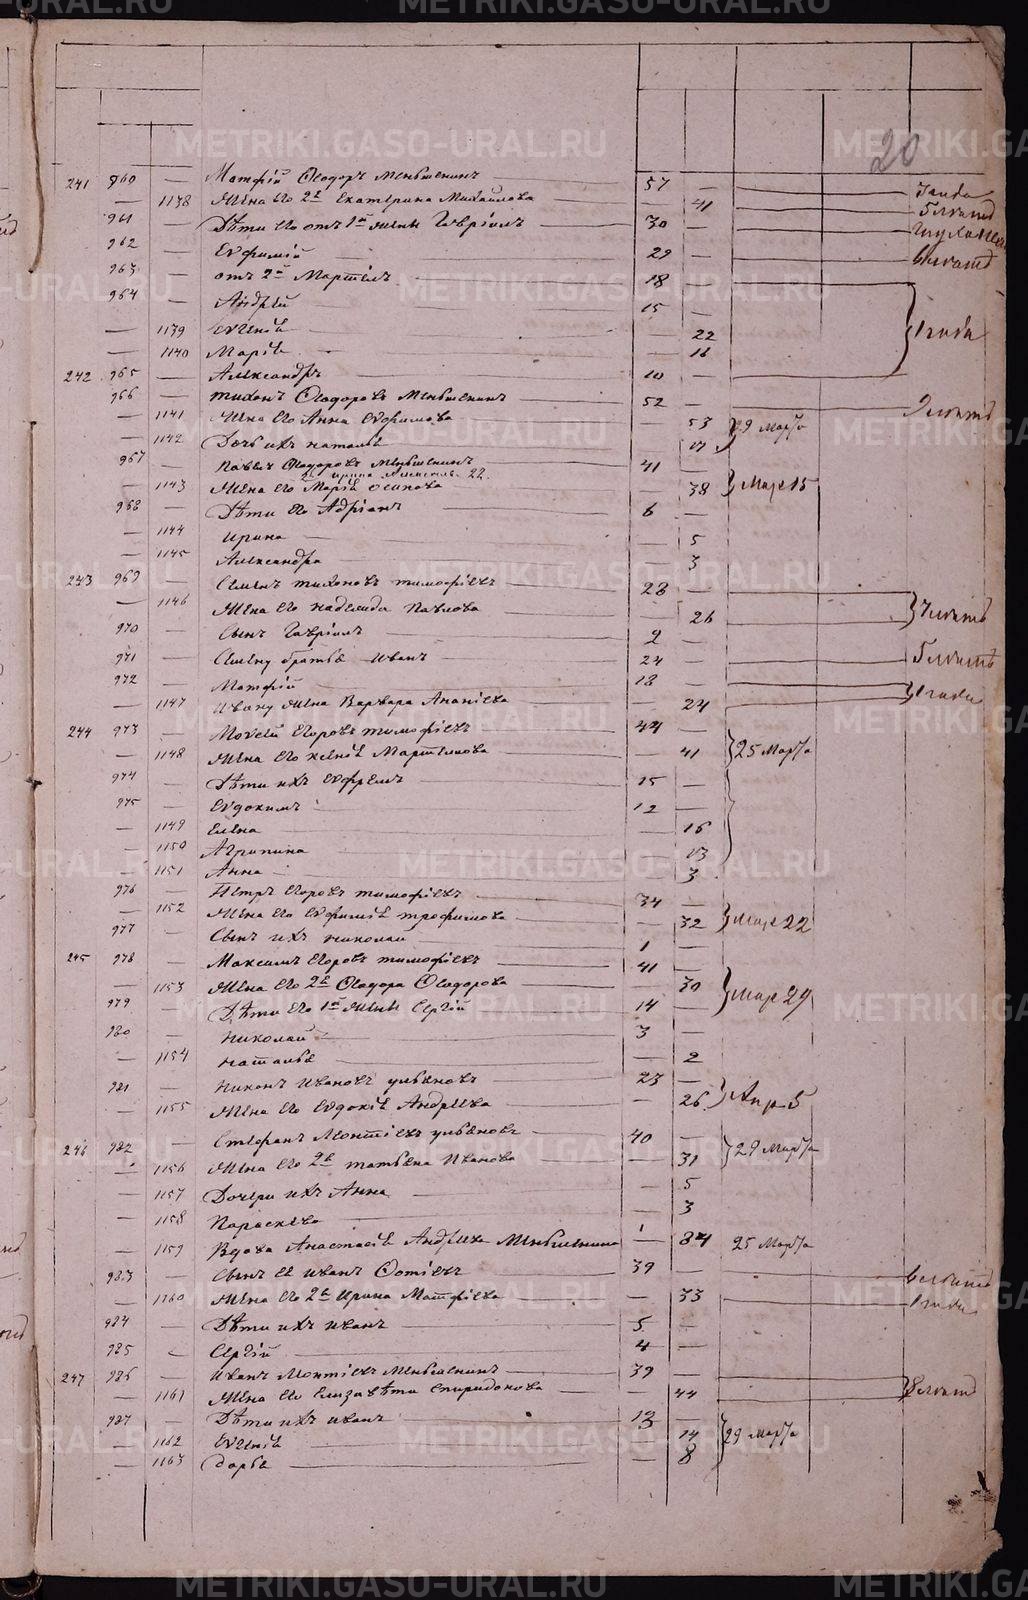 20
241 960 — Матфій Ѳеодоръ Меньшенинъ 57 —
— 1138 Жена его 2я Екатерина Михайлова — 41
961 — Дѣти его отъ 1ой жены Гавріилъ 30 —
962 — Евфимій 29 —
963 — отъ 2й Мартинъ 18 —
964 — Андрей 15 —
— 1139 Евгенія — 22
— 1140 Марія — 16
242 965 — Александръ 10 —
966 — Тихонъ Ѳеодоровъ Меньшенинъ 52 —
— 1141 Жена его Анна Евфимова — 53 29 Марта
— 1142 Дочь ихъ Наталья — 17
967 — Павелъ Ѳеодоровъ Меньшенинъ 41 —
— 1143 Жена его Марія Осипова — 38 Мар 15
968 — Дѣти его Адріанъ 6 —
— 1144 Ирина — 5
— 1145 Александра — 3
243 969 — Семенъ Тихоновъ Тимофѣевъ 28 —
— 1146 Жена его Надежда Павлова — 26
970 — Сынъ Гавріилъ 2 —
971 — Семену братья Иванъ 24 —
972 — Матфій 18 —
— 1147 Ивану жена Варвара Ананіева — 24
244 973 — Моисей Егоровъ Тимофѣевъ 44 —
— 1148 Жена его Ксенія Мартемнова — 41 25 Марта
974 — Дѣти ихъ Ефремъ 15 —
975 — Евдокимъ 12 —
— 1149 Елена — 16
— 1150 Агрипина — 13
— 1151 Анна — 3
976 — Петръ Егоровъ Тимофѣевъ 34 —
— 1152 Жена его Евфимія Трофимова — 32 Мар 22
977 — Сынъ ихъ Николай 1 —
245 978 — Максимъ Егоровъ Тимофѣевъ 41 —
— 1153 Жена его 2я Ѳеодора Ѳеодорова — 30 Мар 29
979 — Дѣти его 1ой жены Сергій 14 —
980 — Николай 3 —
— 1154 Наталья — 2
981 — Никонъ Ивановъ Ульяновъ 23 —
— 1155 Жена его Евдокія Андреева — 26 Апр 5
246 982 — Стефанъ Леонтіевъ Ульяновъ 40 —
— 1156 Жена его 2я Татьяна Иванова — 31 29 Марта
— 1157 Дочери ихъ Анна — 5
— 1158 Параскева — 3
— 1159 Вдова Анастасія Андреева Меньшенина — 84 25 Марта
983 — Сынъ ея Иванъ Фотіевъ 39 —
— 1160 Жена его 2я Ирина Матфіева — 33
984 — Дѣти ихъ Иванъ 5 —
985 — Сергій 4 —
247 986 — Иванъ Леонтіевъ Меньшенинъ 39 —
— 1161 Жена его Елизавета Спиридонова — 44
987 — Дѣти ихъ Иванъ 13 —
— 1162 Евгенія — 14 29 Марта
— 1163 Дарья — 8